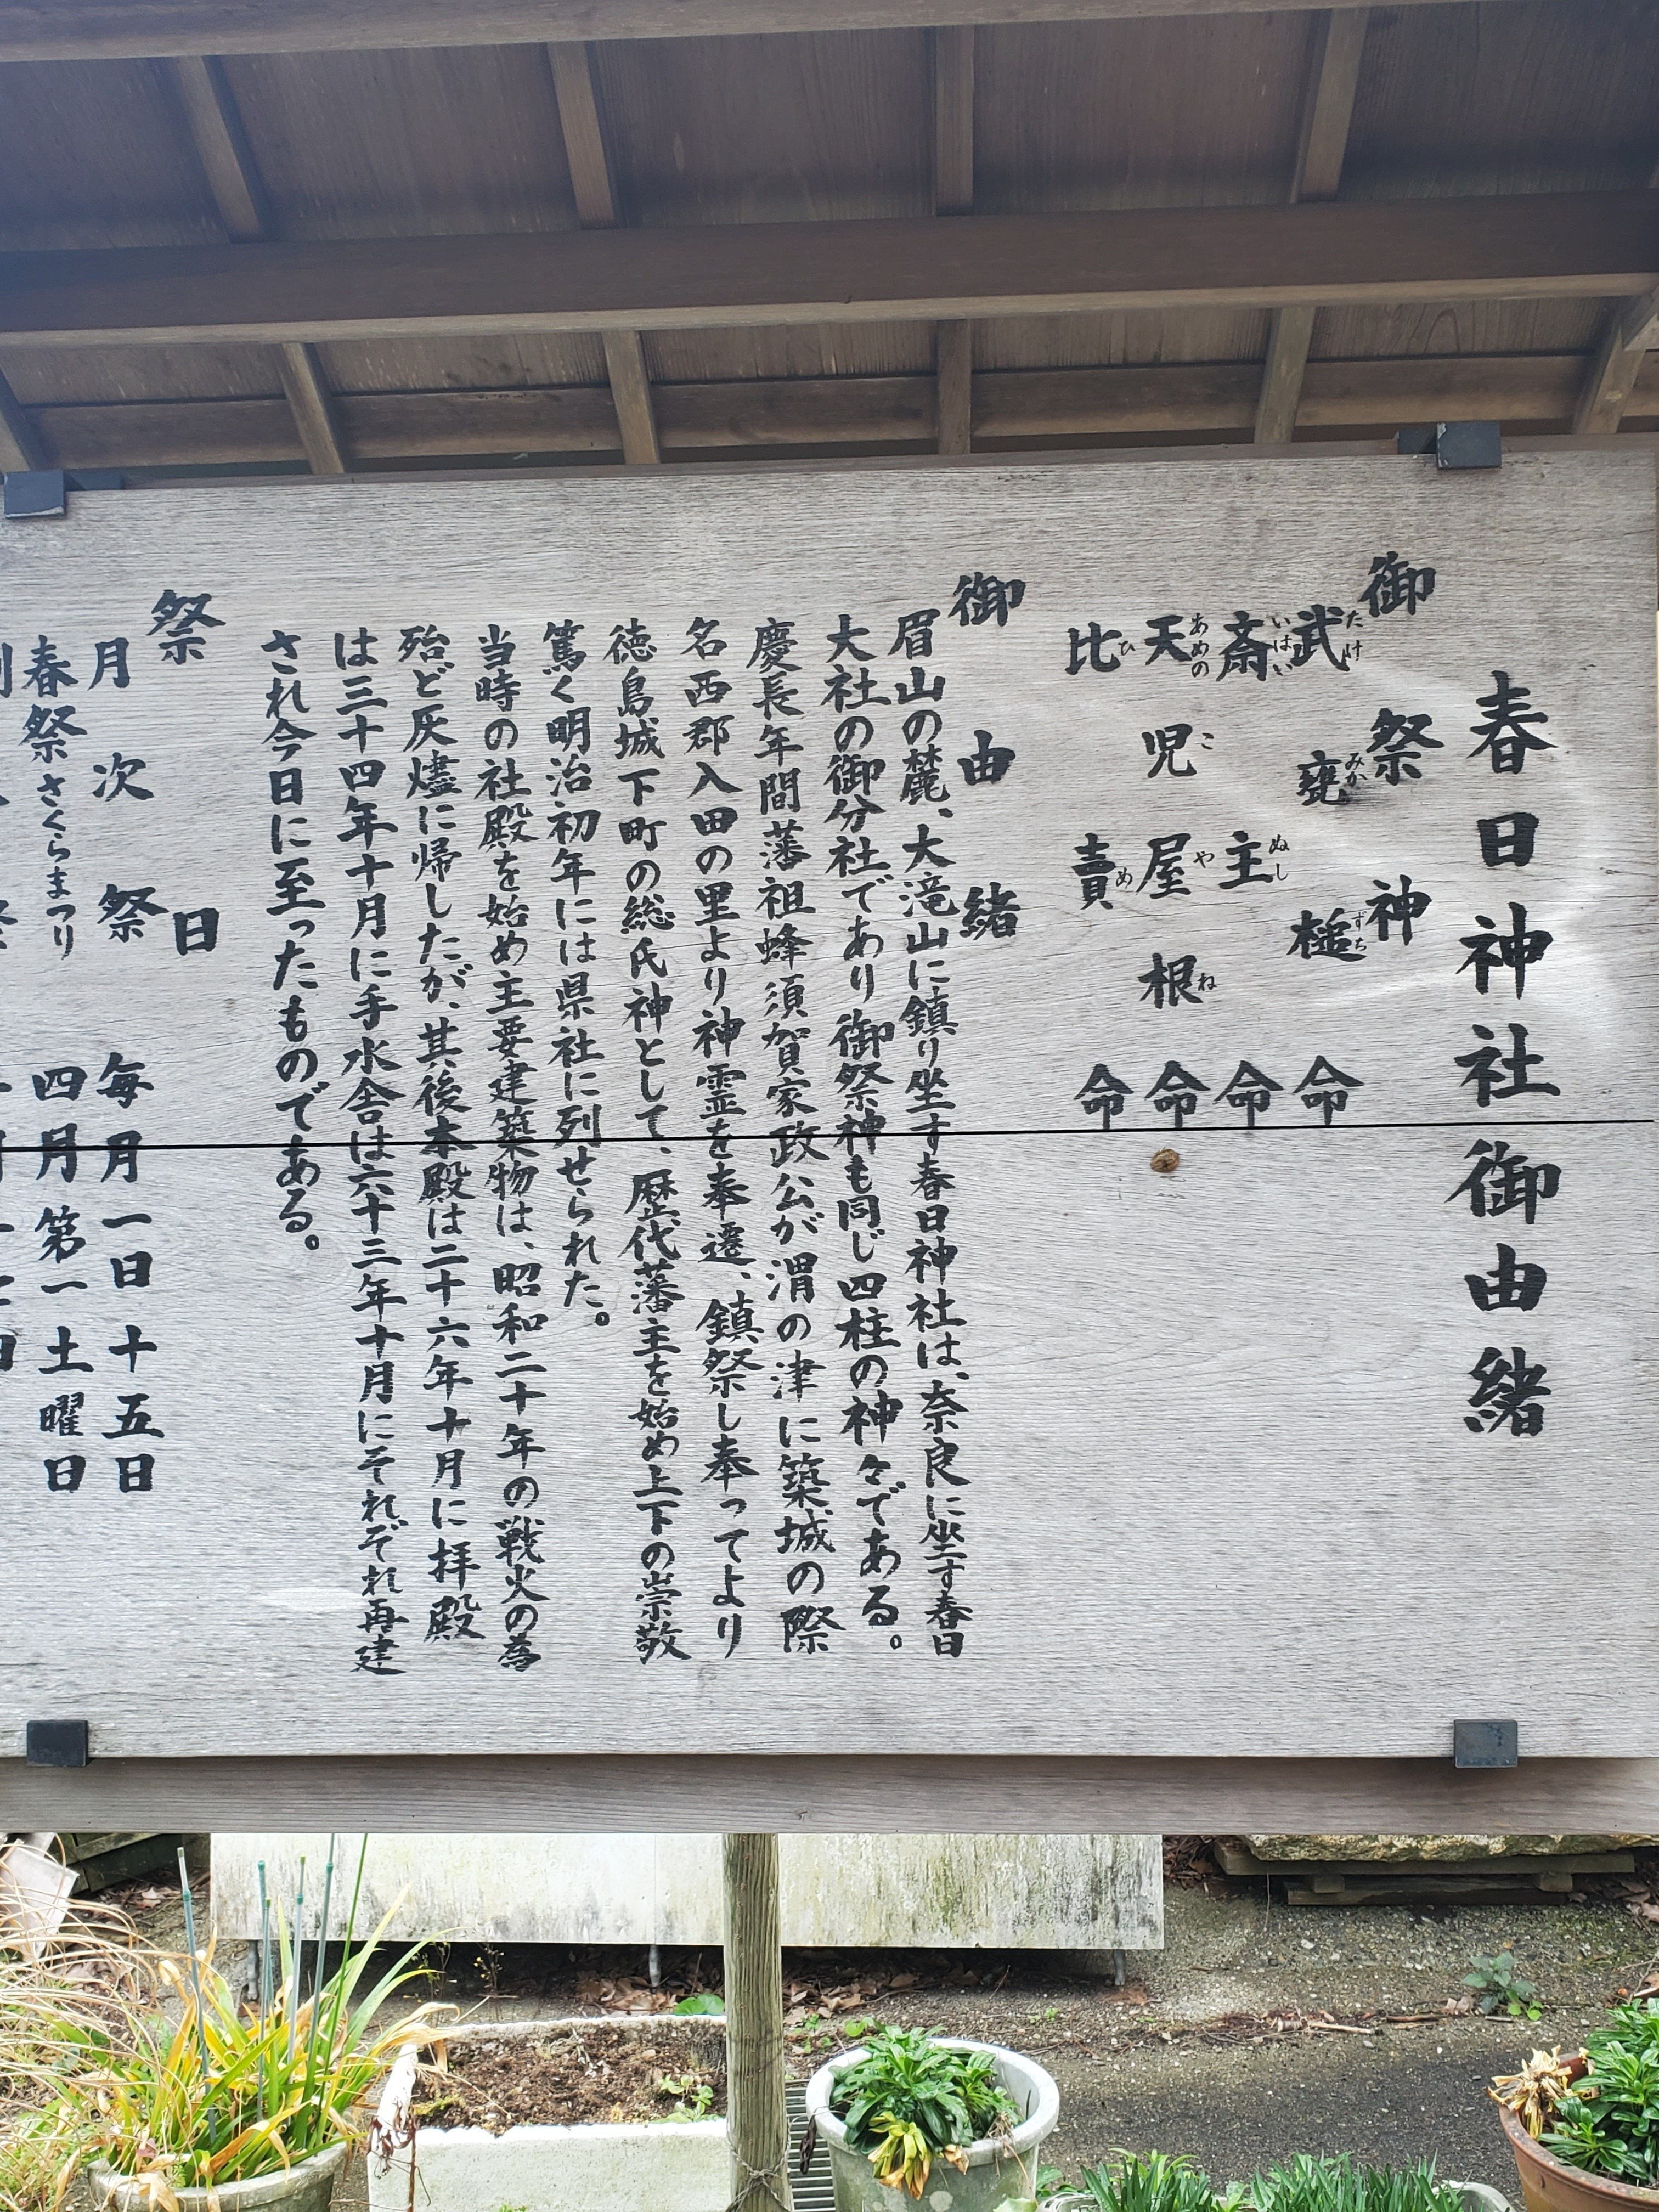 春日神社御由緒
御祭神
武甕槌命
たけみかずち
斎主命
いはいぬし
天児屋根命
あめのこやね
比賣命
ひめ
御由緒
眉山の麓、大滝山に鎮り坐す春日神社は、奈良に坐す春日
大社の御分社であり御祭神も同じ四柱の神々である。
慶長年間藩祖蜂須賀家政公が渭の津に築城の際
名西郡入田の里より神霊を奉遷、鎮祭し奉ってより
徳島城下町の総氏神として、歴代藩主を始め上下の崇敬
篤く明治初年には県社に列せられた。
当時の社殿を始め主要建築物は、昭和二十年の戦火の為
殆ど灰燼に帰したが、其後本殿は二十六年十月に拝殿
は三十四年十月に手水舎は六十三年十月にそれぞれ再建
され今日に至ったものである。
祭日
月次祭 毎月一日十五日
春祭さくらまつり 四月第一土曜日